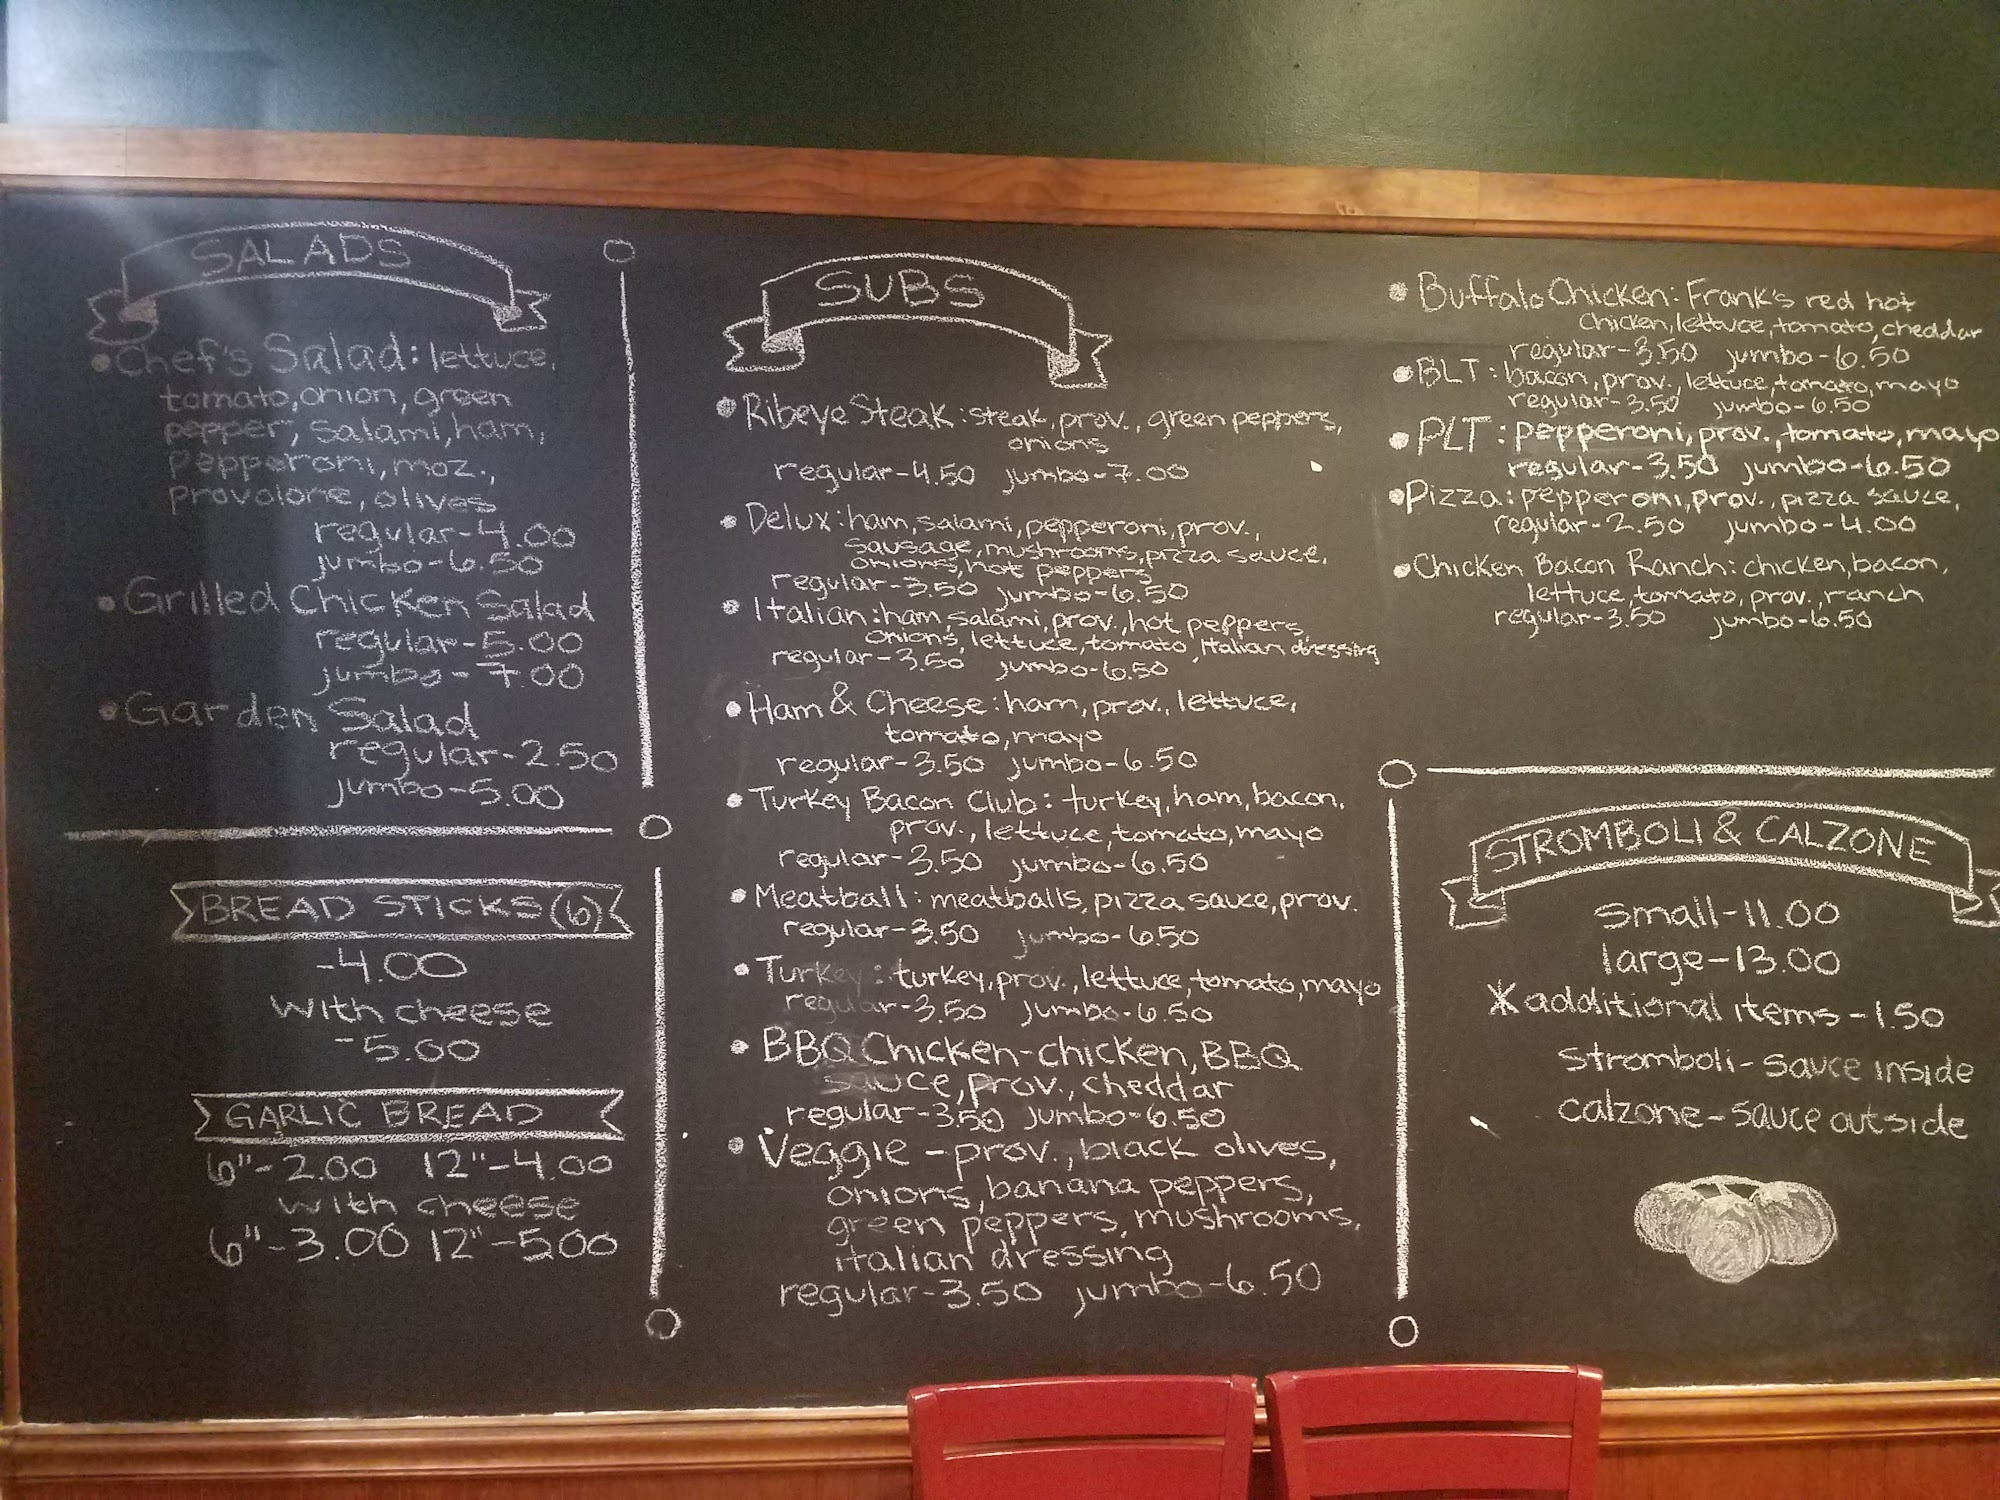 SALADS
•Chef's Salad: lettuce,
tomato, onion, green
pepper, salami, ham,
pepperoni, moz.,
provolone, olives
regular-4.00
jumbo-6.50
•Grilled Chicken Salad
regular-5.00
jumbo-7.00
•Garden Salad
regular-2.50
jumbo-5.00
BREAD STICKS (6)
-4.00
with cheese
-5.00
GARLIC BREAD
6"-2.00 12"-4.00
with cheese
6"-3.00 12"-500
SUBS
•Ribeye Steak: steak, prov., green peppers,
onions
regular-4.50 jumbo-7.00
•Delux: ham, salami, pepperoni, prov.,
sausage, mushrooms, pizza sauce,
onions, hot peppers
regular-3.50 jumbo-6.50
•Italian: ham, salami, prov., hot peppers,
onions, lettuce, tomato, Italian dressing
regular-3.50 jumbo-6.50
•Ham & Cheese: ham, prov., lettuce,
tomato, mayo
regular-3.50 jumbo-6.50
•Turkey Bacon Club: turkey, ham, bacon,
prov., lettuce, tomato, mayo
regular-3.50 jumbo-6.50
•Meatball: meatballs, pizza sauce, prov.
regular-3.50 jumbo-6.50
•Turkey: turkey, prov., lettuce, tomato, mayo
regular-3.50 jumbo-6.50
•BBQ Chicken-chicken, BBQ
sauce, prov., cheddar
regular-3.50 jumbo-6.50
•Veggie-prov., black olives,
onions, banana peppers,
green peppers, mushrooms,
italian dressing
regular-3.50 jumbo-6.50
•Buffalo Chicken: Frank's red hot
chicken, lettuce, tomato, cheddar
regular-3.50 jumbo-6.50
•BLT: bacon, prov., lettuce, tomato, mayo
regular-3.50 jumbo-6.50
•PLT: pepperoni, prov., tomato, mayo
regular-3.50 jumbo-6.50
•Pizza: pepperoni, prov., pizza sauce,
regular-2.50 jumbo-4.00
•Chicken Bacon Ranch: chicken, bacon,
lettuce, tomato, prov., ranch
regular-3.50 jumbo-6.50
STROMBOLI & CALZONE
small-11.00
large-13.00
*additional items-1.50
stromboli-sauce inside
calzone-sauce outside